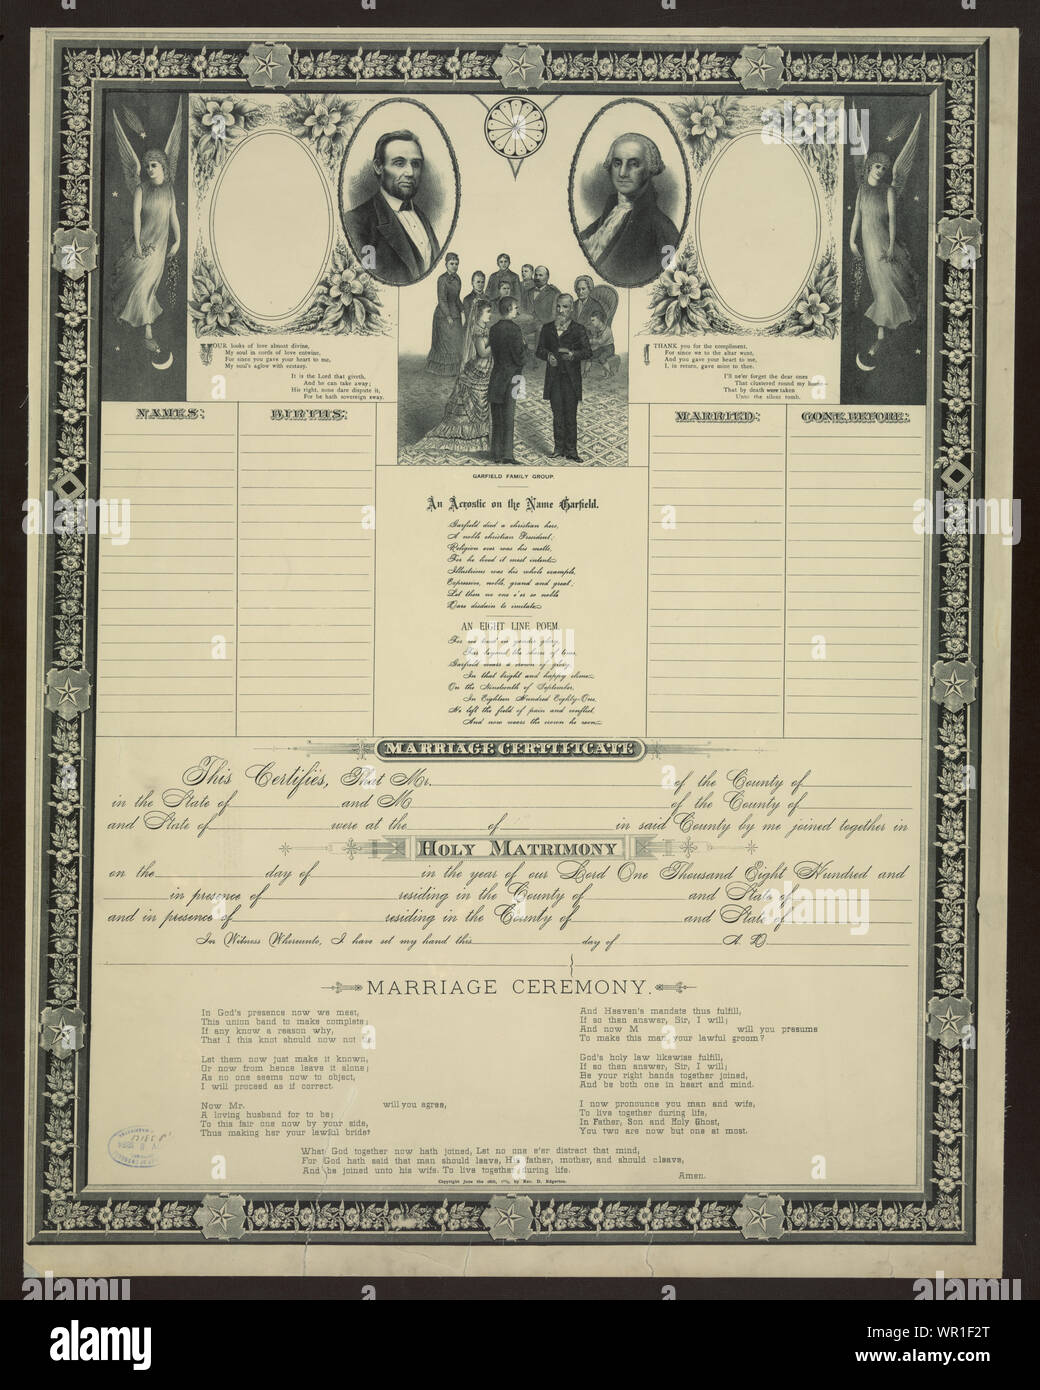 YOUR looks of love almost divine,
My soul in cords of love entwine,
For since you gave your heart to me,
My soul's aglow with ecstasy.
It is the Lord that giveth,
And he can take away;
His right, none dare dispute it,
For he hath sovereign sway.
I THANK you for the compliment,
For since we to the altar went,
And you gave your heart to me,
I, in return, gave mine to thee.
I'll ne'er forget the dear ones
That clustered round my home—
That by death were taken
Unto the silent tomb.
NAMES:
BIRTHS:
MARRIED:
GONE BEFORE:
GARFIELD FAMILY GROUP.
An Acrostic on the Name Garfield.
Garfield died a christian hero,
A noble christian President;
Religion ever was his motto,
For he lived it most intent.
Illustrious was his whole example,
Expressive, noble, grand and great;
Let then no one e'er so noble
Dare disdain to imitate.
AN EIGHT LINE POEM.
For in yonder glory,
Far beyond the shores of time,
Garfield wears a crown of glory,
In that bright and happy clime.
On the Nineteenth of September,
In Eighteen Hundred Eighty-One,
He left the field of pain and conflict,
And now wears the crown he won.
MARRIAGE CERTIFICATE
This Certifies, That Mr. of the County of
in the State of and M of the County of
and State of were at the of in said County by me joined together in
HOLY MATRIMONY
on the day of in the year of our Lord One Thousand Eight Hundred and
in presence of residing in the County of and State of
and in presence of residing in the County of and State of
In Witness Whereunto, I have set my hand this day of A. D.
MARRIAGE CEREMONY.
In God's presence now we meet,
This union band to make complete;
If any know a reason why,
That I this knot should now not
Let them now just make it known,
Or now from hence leave it alone;
As no one seems now to object,
I will proceed as if correct.
Now Mr. will you agree,
A loving husband for to be;
To this fair one now by your side,
Thus making her your lawful bride?
And Heaven's mandate thus fulfill,
If so then answer, Sir, I will;
And now M will you presume
To make this man your lawful groom?
God's holy law likewise fulfill,
If so then answer, Sir, I will;
Be your right hands together joined,
And be both one in heart and mind.
I now pronounce you man and wife,
To live together during life,
In Father, Son and Holy Ghost,
You two are now but one at most.
What God together now hath joined, Let no one e'er distract that mind,
For God hath said that man should leave, His father, mother, and should cleave,
And be joined unto his wife. To live together during life.
Amen.
Copyright June the by Rev. D. Edgerton.
alamy
Image ID: WR1F2T
www.alamy.com